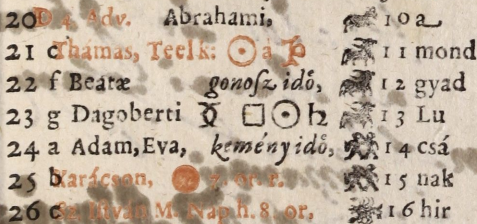 20 D 4. Adv. Abrahami, 10 a
21 c Thámas, Teelk: ☉ á 11 mond
22 f Beatæ gonoſz idő, 12 gyad
23 g Dagoberti ☿ □ ☉ ♄ 13 Lu
24 a Adam, Eva, kemény idő, 14 csá
25 b Karácson, 15 nak
26 c Sz. István M. Nap h. 8. or, 16 hir